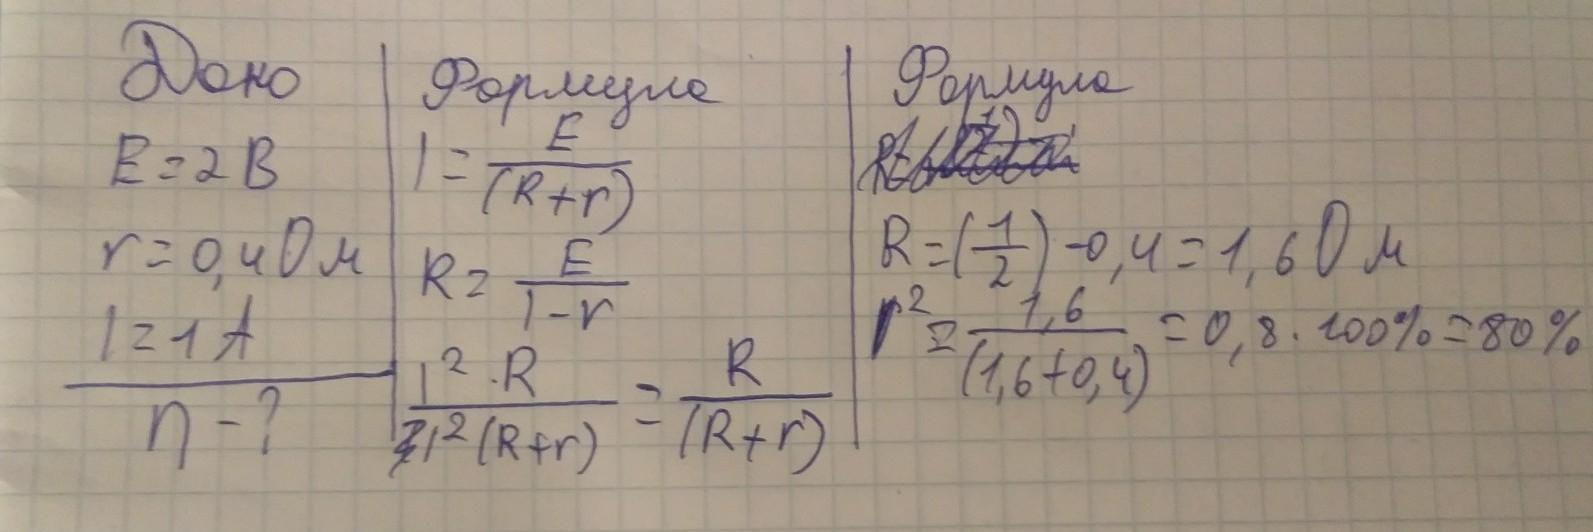 Дано
E=2В
r=0,4Ом
I=1A
η-?
Формула
I=E/(R+r)
R=E/I-r
I²·R/I²(R+r)=R/(R+r)
Формула
R=(1/2)-0,4=1,6Ом
r²=1,6/(1,6+0,4)=0,8·100%=80%